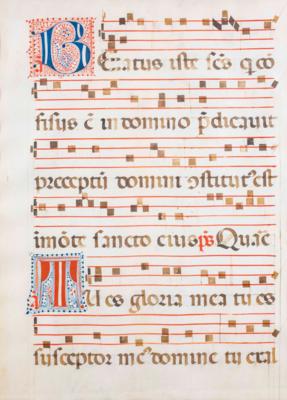 Beatus iste sc̄s q̇ cō
fisus ē in domino p̄dicauit
preceptū domini ꝯstitut᷒ est
in mōte sancto eius ps̄ Quāe
Tu es gloria mea tu es
susceptor me᷒ domine tu exal